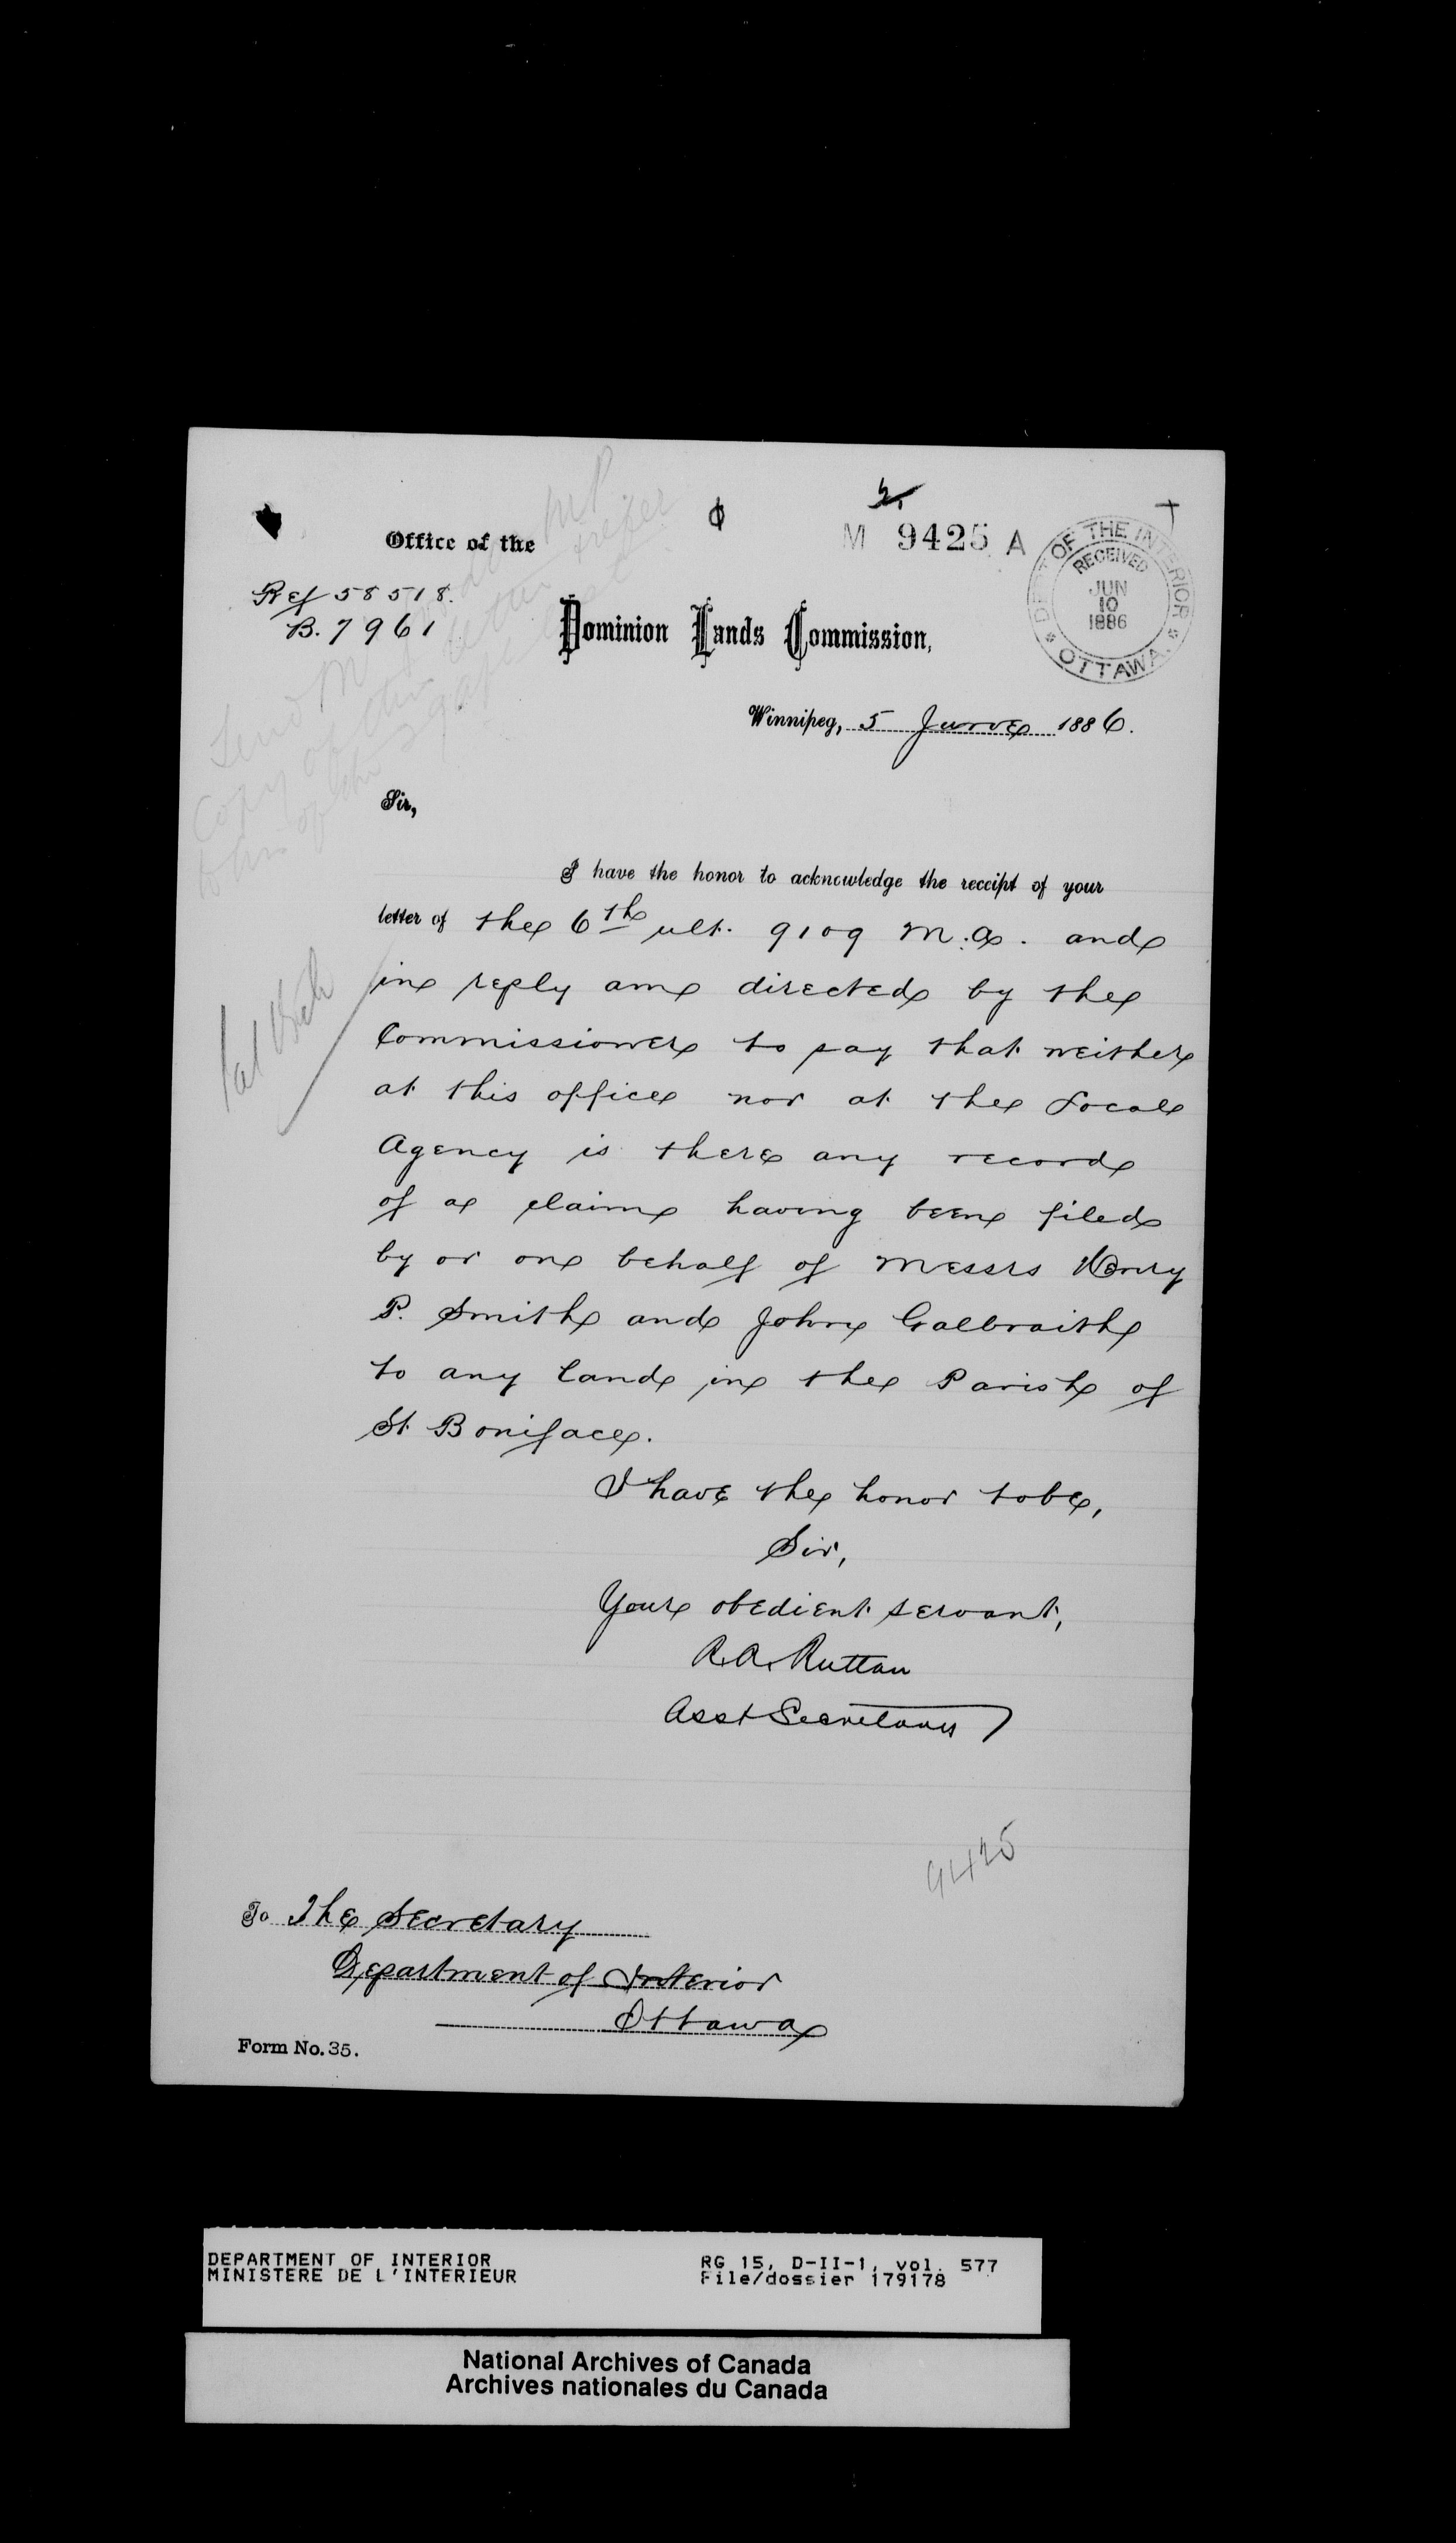 Office of the
M 9425 A
DEPT OF THE INTERIOR
RECEIVED
JUN
10
1886
OTTAWA.
Ref 58518.
B. 7961
Dominion Lands Commission,
Winnipeg, 5 June 1886.
Send
copy of this letter refer
to his
Sir,
I have the honor to acknowledge the receipt of your
letter of the 6th ult. 9109 M.A. and
in reply am directed by the
Commissioner to say that neither
at this office nor at the Local
Agency is there any record
of a claim having been filed
by or on behalf of Messrs Henry
P. Smith and John Galbraith
to any land in the Parish of
St. Boniface.
I have the honor to be,
Sir,
Your obedient servant,
R.A. Ruttan
Asst Secretary
9425
To The Secretary
Department of Interior
Ottawa
Form No. 35.
DEPARTMENT OF INTERIOR RG 15, D-II-1, vol. 577
MINISTERE DE L'INTERIEUR File/dossier 179178
National Archives of Canada
Archives nationales du Canada